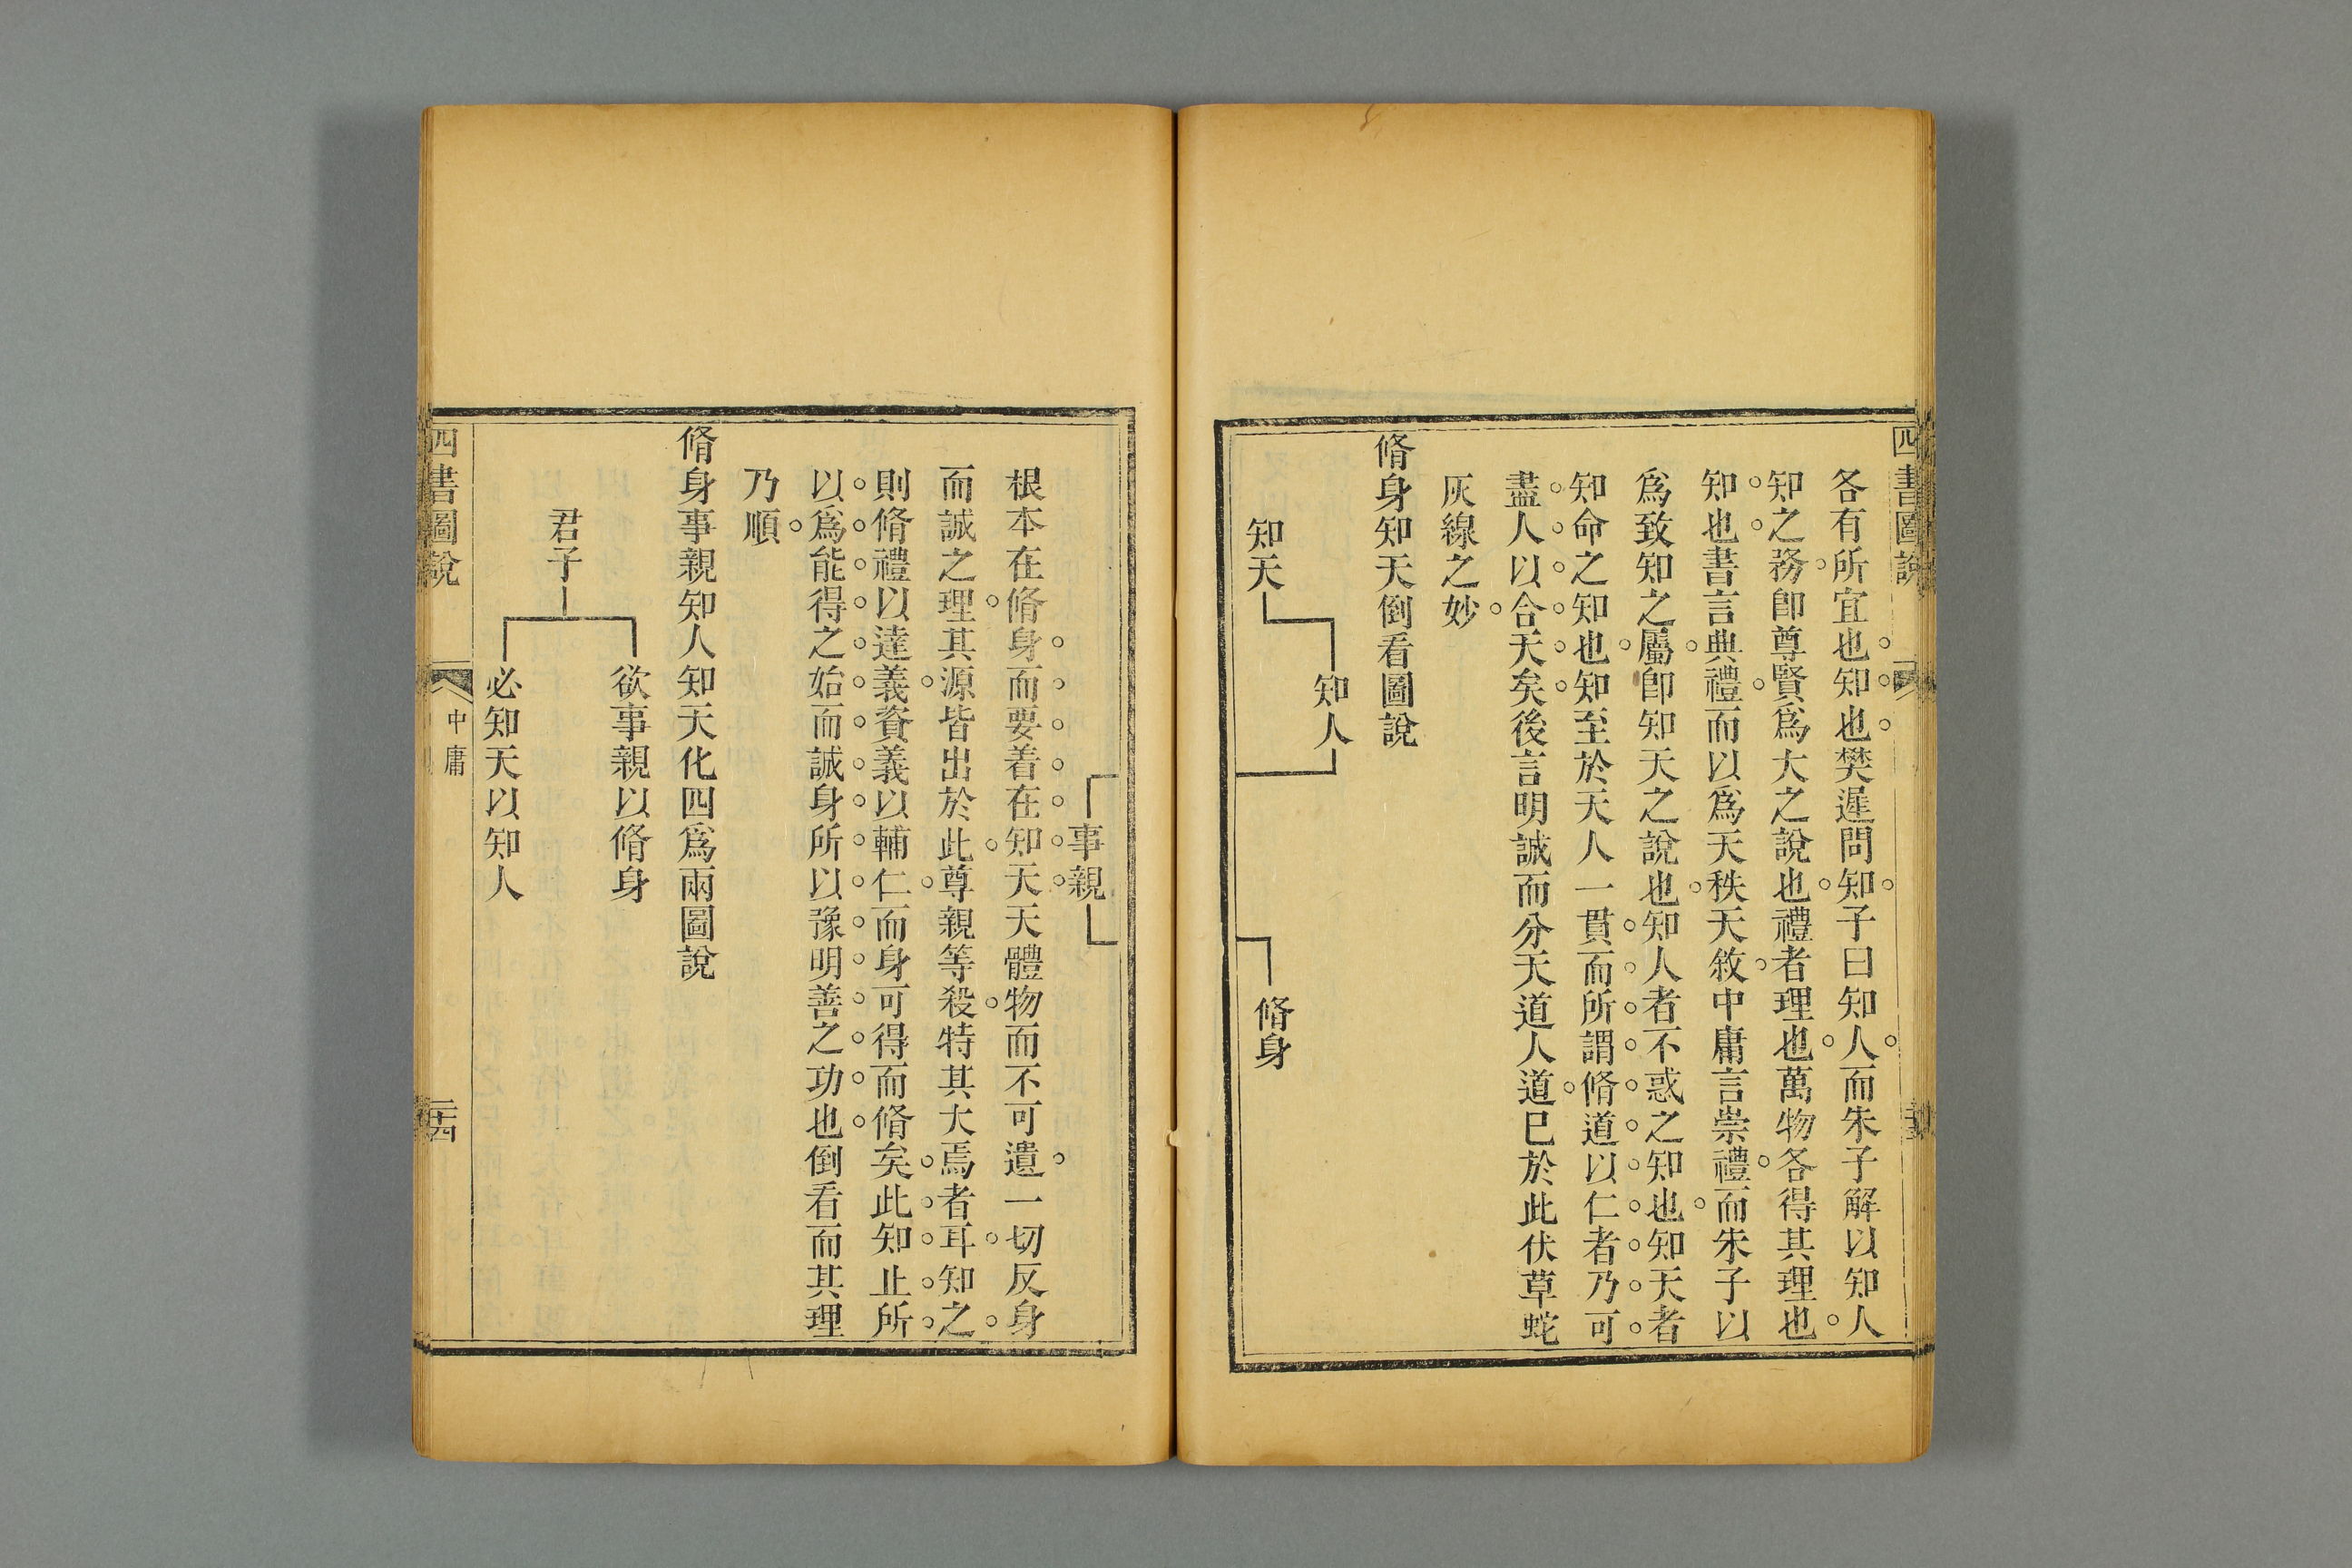 四書圖說
各有所宜也知也樊遲問知子曰知人而朱子解以知人
知之務卽尊賢爲大之說也禮者理也萬物各得其理也
知也書言典禮而以爲天秩天敘中庸言崇禮而朱子以
爲致知之屬卽知天之說也知人者不惑之知也知天者
知命之知也知至於天人一貫而所謂脩道以仁者乃可
盡人以合天矣後言明誠而分天道人道巳於此伏草蛇
灰線之妙
脩身知天倒看圖說
知人
知天
脩身
事親
根本在脩身而要着在知天天體物而不可遺一切反身
而誠之理其源皆出於此尊親等殺特其大焉者耳知之
則脩禮以達義資義以輔仁而身可得而脩矣此知止所
以爲能得之始而誠身所以豫明善之功也倒看而其理
乃順
脩身事親知人知天化四爲兩圖說
欲事親以脩身
君子
必知天以知人
四書圖說
中庸
二十四